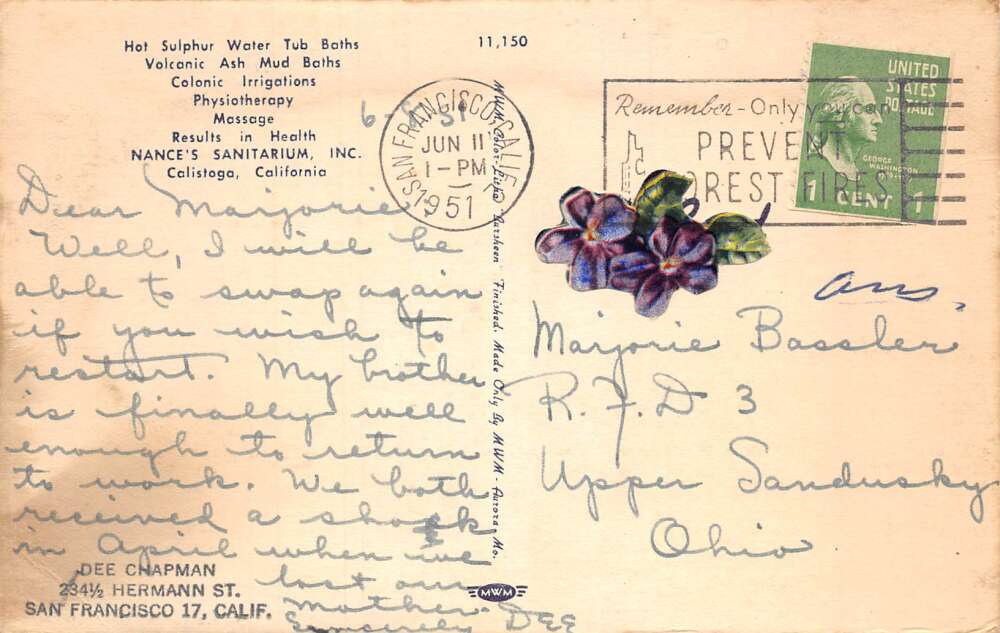 Hot Sulphur Water Tub Baths
Volcanic Ash Mud Baths
Colonic Irrigations
Physiotherapy
Massage
Results in Health
NANCE'S SANITARIUM, INC.
Calistoga, California
11,150
SAN FRANCISCO, CALIF.
JUN 11
1-PM
1951
Remember - Only you can
PREVENT
FOREST FIRES
UNITED
STATES
POSTAGE
GEORGE
WASHINGTON
1 CENT 1
Dear Marjorie,
Well, I will be
able to swap again
if you wish to
restart. My brother
is finally well
enough to return
to work. We both
received a shock
in April when we
lost our
mother.
Sincerely DEE
DEE CHAPMAN
234½ HERMANN ST.
SAN FRANCISCO 17, CALIF.
MWM Color-Litho Finished. Made Only By MWM - Aurora, Mo.
MWM
ans.
Marjorie Bassler
R.F.D 3
Upper Sandusky
Ohio